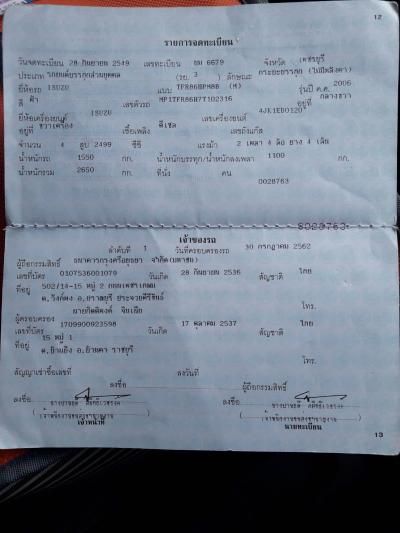 12
รายการจดทะเบียน
วันจดทะเบียน 28 กันยายน 2549 เลขทะเบียน 6679 จังหวัด เพชรบุรี
ประเภท รถยนต์บรรทุกส่วนบุคคล (รย. 3 ) ลักษณะ กระบะบรรทุก (ไม่มีหลังคา)
ยี่ห้อรถ ISUZU แบบ TFR86HPM8B (M) รุ่นปี ค.ศ. 2006
สี ฟ้า เลขตัวรถ MP1TFR86H7T102316 อยู่ที่ กลางขวา
ยี่ห้อเครื่องยนต์ ISUZU เลขเครื่องยนต์ 4JK1ED0120
อยู่ที่ ขวาเครื่อง เชื้อเพลิง ดีเซล เลขถังแก๊ส
จำนวน 4 สูบ 2499 ซีซี แรงม้า 2 เพลา 4 ล้อ ยาง 4 เส้น
น้ำหนักรถ 1550 กก. น้ำหนักบรรทุก/น้ำหนักลงเพลา 1100 กก.
น้ำหนักรวม 2650 กก. ที่นั่ง คน
0028763
0028763
เจ้าของรถ
ลำดับที่ 1 วันที่ครอบครองรถ 30 กรกฎาคม 2562
ผู้ถือกรรมสิทธิ์ ธนาคารกรุงศรีอยุธยา จำกัด(มหาชน)
เลขที่บัตร 0107536001079 วันเกิด 28 กันยายน 2536 สัญชาติ ไทย
ที่อยู่ 502/14-15 หมู่ 2 ถนนเพชรเกษม
ต.วังก์พง อ.ปราณบุรี ประจวบคีรีขันธ์ โทร.
ผู้ครอบครอง
เลขที่บัตร 1709900923598 วันเกิด 17 ตุลาคม 2537 สัญชาติ ไทย
ที่อยู่ 15 หมู่ 1
ราชบุรี โทร.
สัญญาเช่าซื้อเลขที่ ลงวันที่
ลงชื่อ ผู้ถือกรรมสิทธิ์
ลงชื่อ ลงชื่อ
เจ้าหน้าที่ นายทะเบียน
13